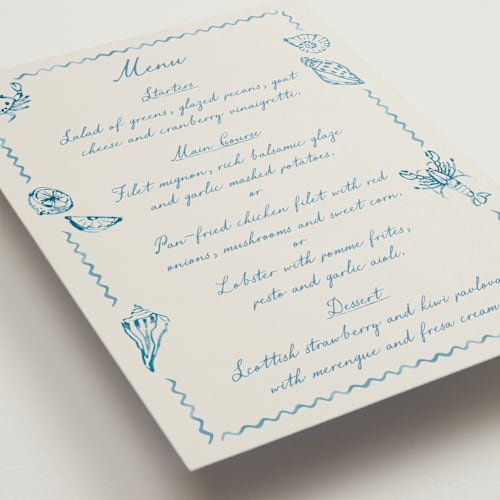 Menu
Starters
Salad of greens, glazed pecans, goat
cheese and cranberry vinaigrette.
Main Course
Filet mignon, rich balsamic glaze
and garlic mashed potatoes.
or
Pan-fried chicken filet with red
onions, mushrooms and sweet corn.
or
Lobster with pomme frites,
pesto and garlic aioli.
Dessert
Scottish strawberry and kiwi pavlova
with merengue and fresa cream